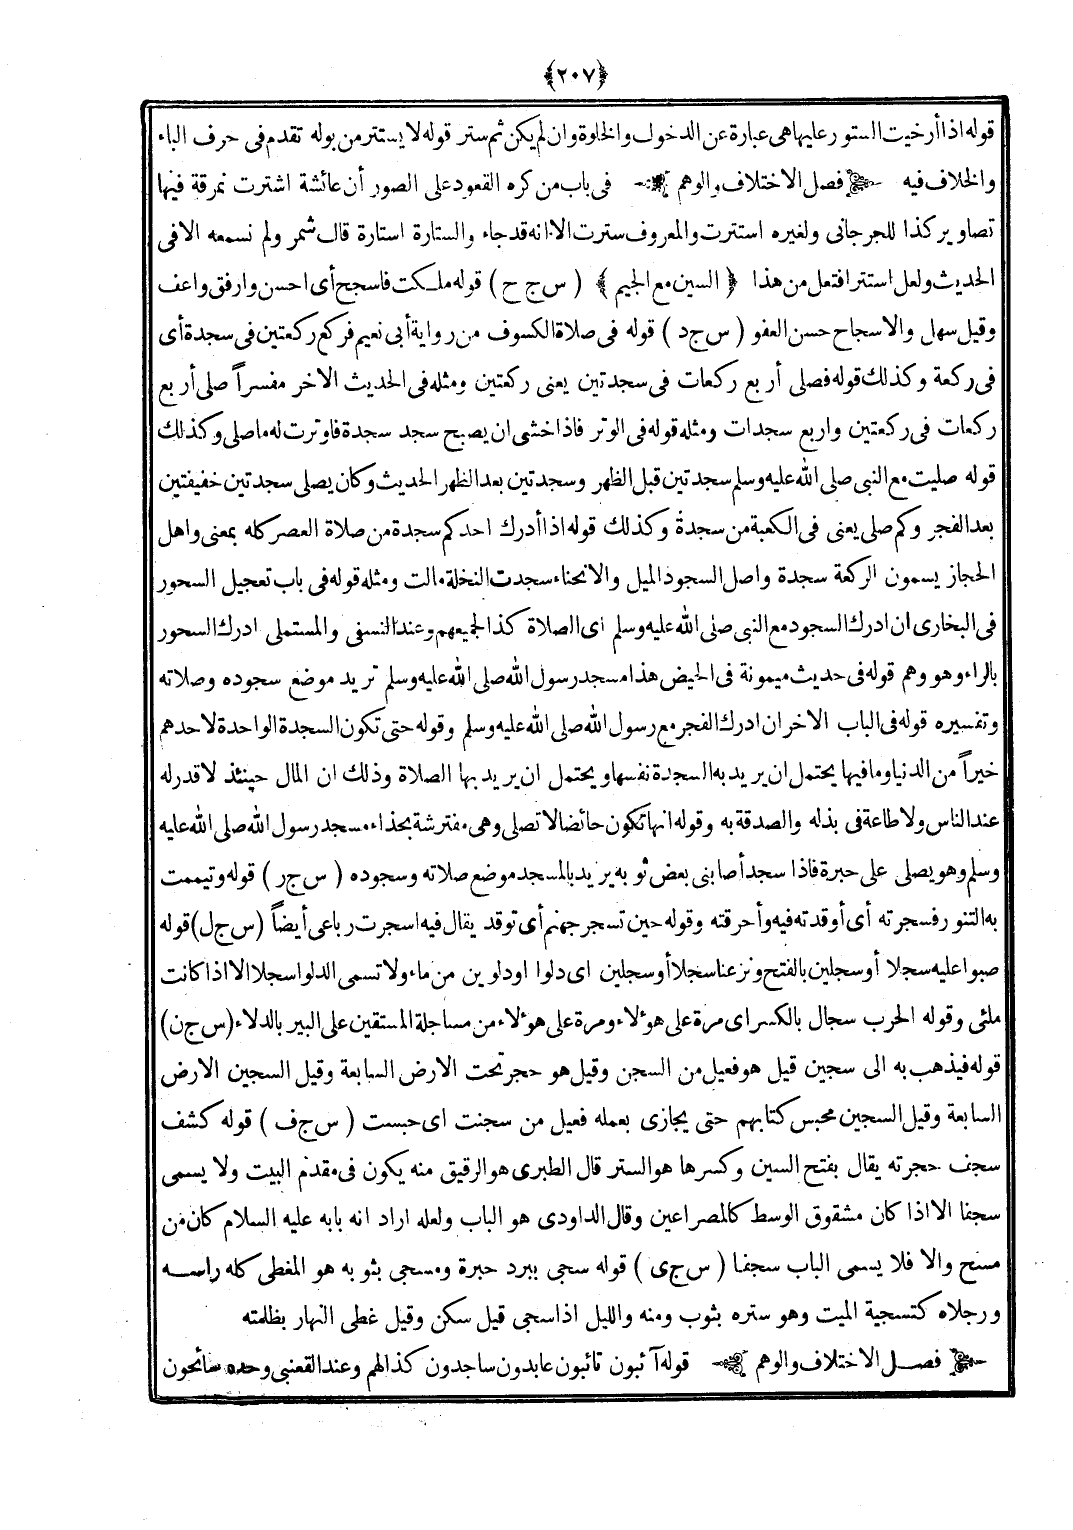 ﴿٢٠٧﴾
قوله اذا أرخيت الستور عليها هى عبارة عن الدخول والخلوة وان لم يكن ثم ستر قوله لا يستتر من بوله تقدم فى حرف الباء
والخلاف فيه فصل الاختلاف والوهم فى باب من كره القعود على الصور أن عائشة اشترت نمرقة فيها
تصاوير كذا للجرجانى ولغيره استترت والمعروف سترت الا انه قد جاء والستارة استارة قال شمر ولم نسمعه الا فى
الحديث ولعل استتر افتعل من هذا ﴿ السين مع الجيم ﴾ ( س ج ح ) قوله ملكت فاسجح أى احسن وارفق واعف
وقيل سهل والاسجاح حسن العفو ( س ج د ) قوله فى صلاة الكسوف من رواية أبى نعيم فركع ركعتين فى سجدة أى
فى ركعة وكذلك قوله فصلى أربع ركعات فى سجدتين يعنى ركعتين ومثله فى الحديث الاخر مفسراً صلى أربع
ركعات فى ركعتين واربع سجدات ومثله قوله فى الوتر فاذا خشى ان يصبح سجد سجدة فاوترت له ما صلى وكذلك
قوله صليت مع النبى صلى الله عليه وسلم سجدتين قبل الظهر وسجدتين بعد الظهر الحديث وكان يصلى سجدتين خفيفتين
بعد الفجر وكم صلى يعنى فى الكعبة من سجدة وكذلك قوله اذا أدرك احدكم سجدة من صلاة العصر كله بمعنى واهل
الحجاز يسمون الركعة سجدة واصل السجود الميل والانحناء سجدت النخلة مالت ومثله قوله فى باب تعجيل السحور
فى البخارى ان ادرك السجود مع النبى صلى الله عليه وسلم اى الصلاة كذا لجميعهم وعند النسفى والمستملى ادرك السحور
بالراء وهو وهم قوله فى حديث ميمونة فى الحيض هذا مسجد رسول الله صلى الله عليه وسلم تريد موضع سجوده وصلاته
وتفسيره قوله فى الباب الاخر ان ادرك الفجر مع رسول الله صلى الله عليه وسلم وقوله حتى تكون السجدة الواحدة لاحدهم
خيراً من الدنيا وما فيها يحتمل ان يريد به السجدة نفسها ويحتمل ان يريد بها الصلاة وذلك ان المال حينئذ لا قدر له
عند الناس ولا طاعة فى بذله والصدقة به وقوله انها تكون حائضا لا تصلى وهى مفترشة بحذاء مسجد رسول الله صلى الله عليه
وسلم وهو يصلى على حبرة فاذا سجد أصابنى بعض ثوبه يريد بالمسجد موضع صلاته وسجوده ( س ج ر ) قوله وتيممت
به التنور فسجرته أى أوقدته فيه وأحرقته وقوله حين تسجر جهنم أى توقد يقال فيه اسجرت رباعى أيضاً ( س ج ل ) قوله
صبوا عليه سجلا أو سجلين بالفتح ونزعنا سجلا أو سجلين اى دلوا او دلوين من ماء ولا تسمى الدلو اسجلا الا اذا كانت
ملئى وقوله الحرب سجال بالكسر اى مرة على هؤلاء ومرة على هؤلاء من مساجلة المستقين على البير بالدلاء ( س ج ن )
قوله فيذهب به الى سجين قيل هو فعيل من السجن وقيل هو حجر تحت الارض السابعة وقيل السجين الارض
السابعة وقيل السجين محبس كتابهم حتى يجازى بعمله فعيل من سجنت اى حبست ( س ج ف ) قوله كشف
سجف حجرته يقال بفتح السين وكسرها هو الستر قال الطبرى هو الرقيق منه يكون فى مقدم البيت ولا يسمى
سجفا الا اذا كان مشقوق الوسط كالمصراعين وقال الداودى هو الباب ولعله اراد انه بابه عليه السلام كان من
مسح والا فلا يسمى الباب سجفا ( س ج ى ) قوله سجى ببرد حبرة ومسجى بثوبه هو المغطى كله راسه
ورجلاه كتسجية الميت وهو ستره بثوب ومنه والليل اذا سجى قيل سكن وقيل غطى النهار بظلمته
فصل الاختلاف والوهم قوله آئبون تائبون عابدون ساجدون كذا لهم وعند القعنبى وحده سائحون